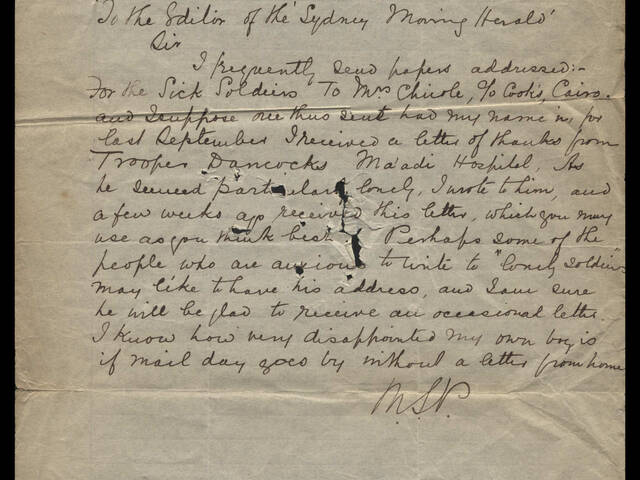 "To the Editor of the 'Sydney Morning Herald'
Sir
I frequently send papers addressed:-
For the Sick Soldiers To Mrs Chisole, c/o Cook's, Cairo.
and I suppose one thus sent had my name in, for
last September I received a letter of thanks from
Trooper Dancocks Ma'adi Hospital. As
he seemed particularly lonely, I wrote to him, and
a few weeks ago received this letter, which you may
use as you think best. Perhaps some of the
people who are anxious to write to "lonely soldiers"
may like to have his address, and I am sure
he will be glad to receive an occasional letter.
I know how very disappointed my own boy is
if mail day goes by without a letter from home
M.S.P.